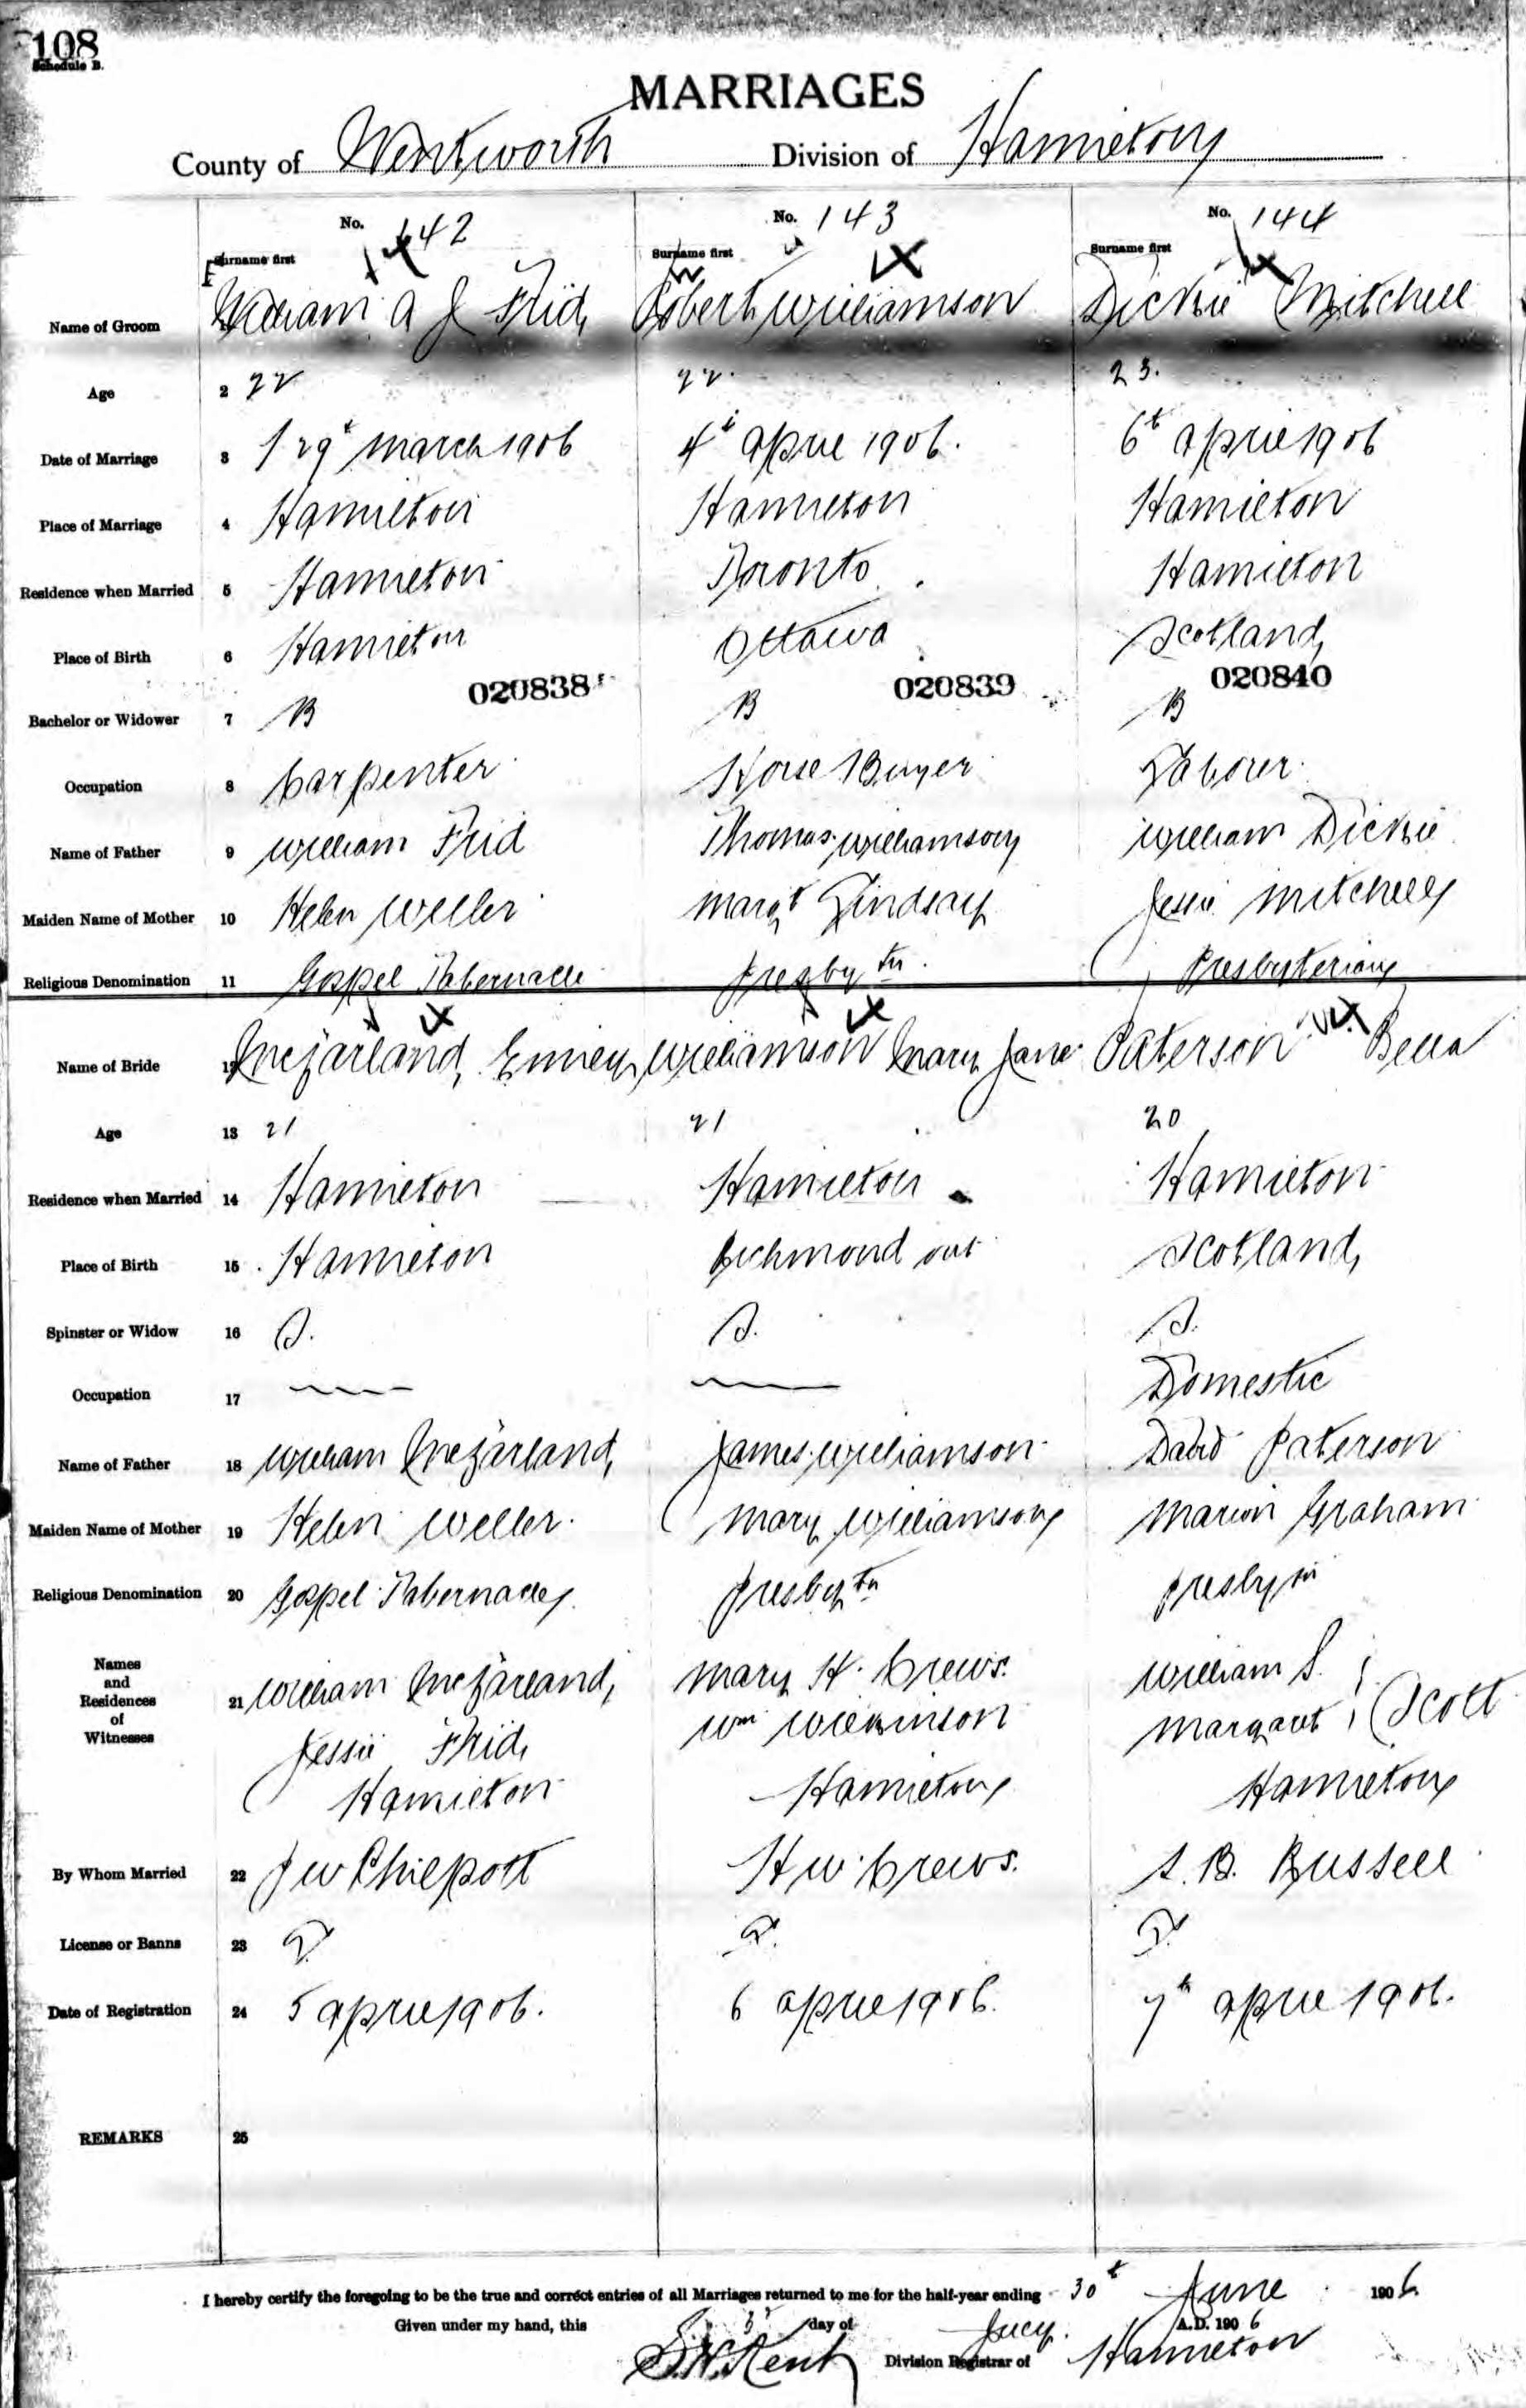 108
Schedule B.
MARRIAGES
County of Wentworth Division of Hamilton
No. 142 No. 143 No. 144
Surname first Surname first Surname first
Name of Groom William A J Frid Robert Williamson Dickie Mitchell
Age 2 22 22. 23.
Date of Marriage 3 29t March 1906 4t April 1906. 6t April 1906
Place of Marriage 4 Hamilton Hamilton Hamilton
Residence when Married 5 Hamilton Toronto Hamilton
Place of Birth 6 Hamilton Ottawa Scotland
020838 020839 020840
Bachelor or Widower 7 B B B
Occupation 8 Carpenter Horse Buyer Laborer
Name of Father 9 William Frid Thomas Williamson William Dickie
Maiden Name of Mother 10 Helen Weller Margt Lindsay Jessie Mitchell
Religious Denomination 11 Gospel Tabernacle Presbytn. Presbyterian
Name of Bride 12 McFarland, Emily Williamson Mary Jane Paterson Bella
Age 13 21 21 20
Residence when Married 14 Hamilton Hamilton Hamilton
Place of Birth 15 Hamilton Richmond Ont Scotland
Spinster or Widow 16 S. S. S.
Occupation 17 — — Domestic
Name of Father 18 William McFarland James Williamson David Paterson
Maiden Name of Mother 19 Helen Weller. Mary Williamson Marion Graham
Religious Denomination 20 Gospel Tabernacle Presbytn Presbytn
Names
and
Residences
of
Witnesses
21 William McFarland, Mary H. Crews. William S.
Jessie Frid, Wm Wilkinson Margaret Scott
Hamilton Hamilton Hamilton
By Whom Married 22 J W Philpott H W Crews. S. B. Russell
License or Banns 23 L L L
Date of Registration 24 5 April 1906. 6 April 1906. 7th April 1906.
REMARKS 25
I hereby certify the foregoing to be the true and correct entries of all Marriages returned to me for the half-year ending 30t June 1906
Given under my hand, this 3 day of July. A.D. 1906
S.H. Kent Division Registrar of Hamilton